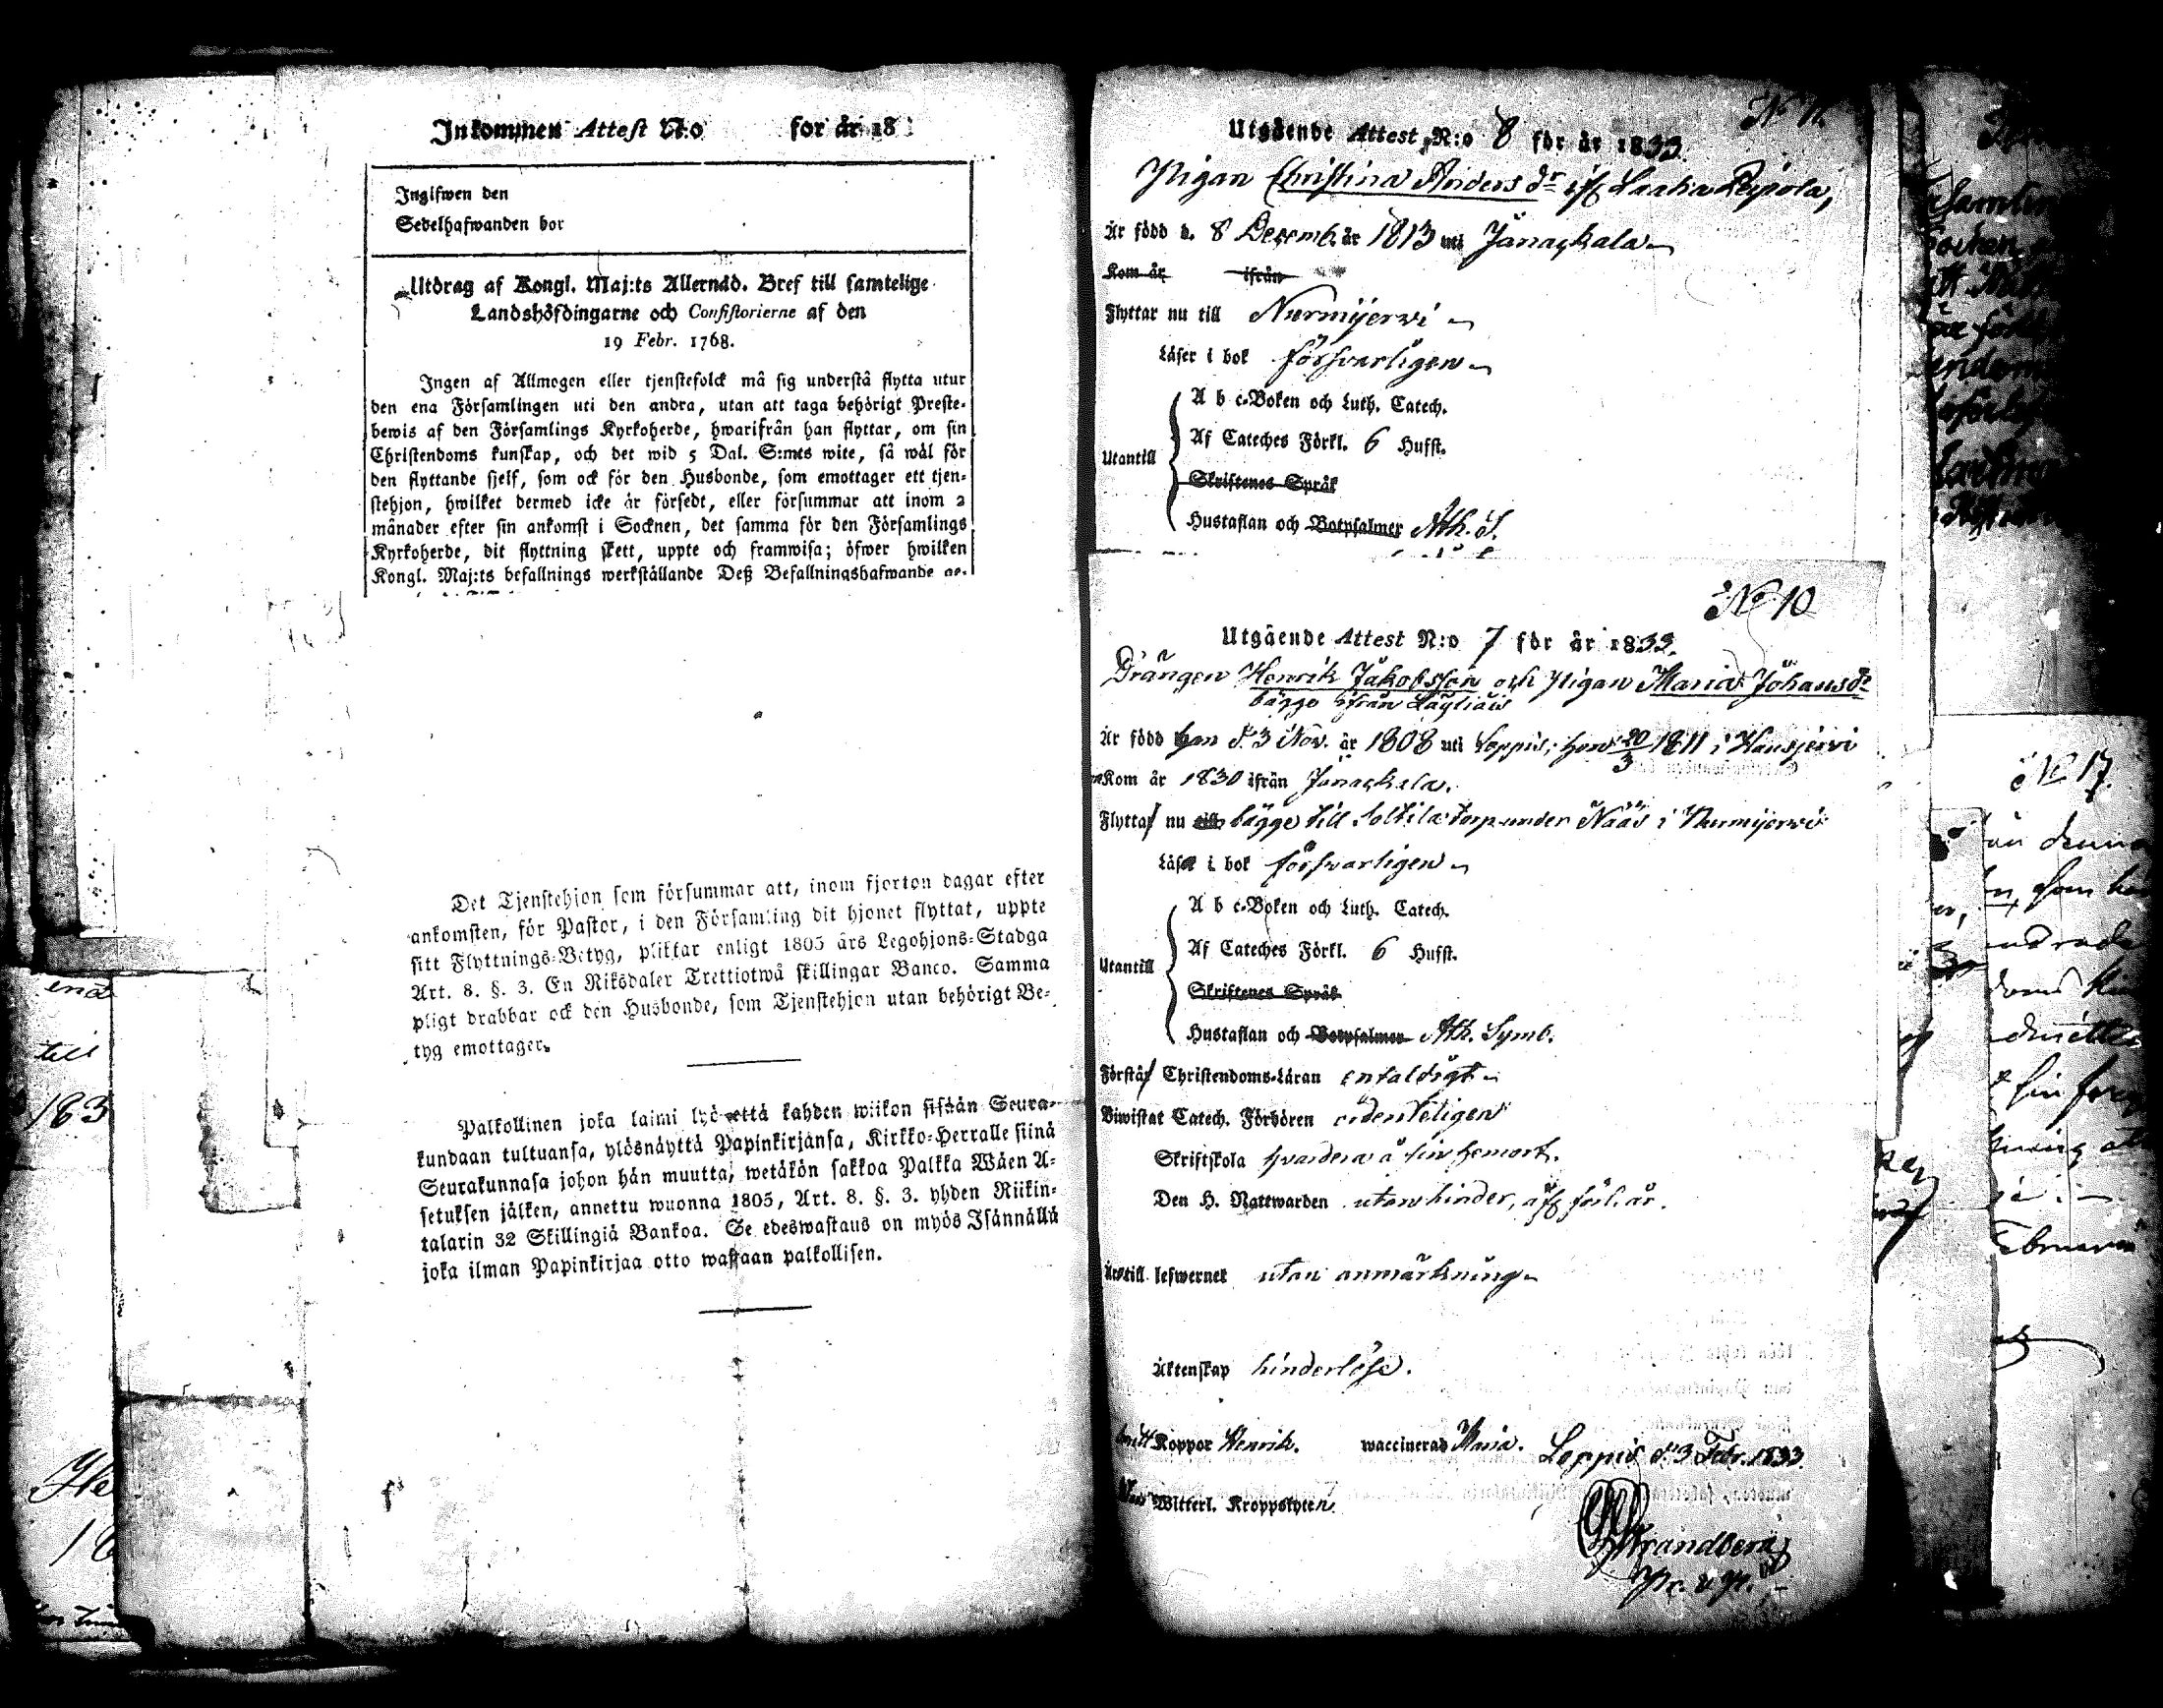 Inkommen Attest N:o for år 18
Ingifwen den
Sedelhafwanden bor
Utdrag af Kongl. Maj:ts Allernåd. Bref till samtelige
Landshöfdingarne och Consistorierne af den
19 Febr. 1768.
Ingen af Allmogen eller tjenstefolck må sig understå flytta utur
den ena Församlingen uti den andra, utan att taga behörigt Preste-
bewis af den Församlings Kyrkoherde, hwarifrån han flyttar, om sin
Christendoms kunskap, och det wid 5 Dal. S:mts wite, så wäl för
den flyttande sjelf, som ock för den Husbonde, som emottager ett tjen-
stehjon, hwilket dermed icke är försedt, eller försummar att inom 2
månader efter sin ankomst i Socknen, det samma för den Församlings
Kyrkoherde, dit flyttning skett, uppte och framwisa; öfwer hwilken
Kongl. Maj:ts befallnings werkställande Deß Befallningshafwande
Det Tjenstehjon som försummar att, inom fjorton dagar efter
ankomsten, för Pastor, i den Församling dit hjonet flyttat, uppte
sitt Flyttnings-Betyg, pliktar enligt 1805 års Legohjons-Stadga
Art. 8. §. 3. En Riksdaler Trettiotwå skillingar Banco. Samma
pligt drabbar ock den Husbonde, som Tjenstehjon utan behörigt Be-
tyg emottager.
Palkollinen joka laimi lyö että kahden wiikon sisään Seura-
kundaan tultuansa, ylösnäyttä Papinkirjansa, Kirkko-Herralle siinä
Seurakunnasa johon hän muutta, wetäkön sakkoa Palkka Wäen A-
setuksen jälken, annettu wuonna 1805, Art. 8. §. 3. yhden Riikin-
talarin 32 Skillingiä Bankoa. Se edeswastaus on myös Isännällä
joka ilman Papinkirjaa otto wastaan palkollisen.
N 11.
Utgående Attest N:o 8 för år 1833.
Pigan Christina Anders dr ifr
Är född d. 8 Decemb. år 1813 uti Janackala
Kom år ifrån
Flyttar nu till Nurmijerwi
Läser i bok försvarligen
Utantill
A b c-Boken och Luth. Catech.
Af Cateches Förkl. 6 Hufst.
Skriftenes Språk
Hustaflan och Botpsalmer Ath. S.
No 10
Utgående Attest N:o 7 för år 1833.
Drängen Henrik Jakobsson och Pigan Maria Johansdr
bägge ifrån
Är född han d. 3 Nov. år 1808 uti Loppis; hon 20/3 1811 i Hausjervi
Kom år 1830 ifrån Janackala.
Flytta nu till bägge till Soltila torp under Nääs i Nurmijerwi
Läser i bok försvarligen
Utantill
A b c-Boken och Luth. Catech.
Af Cateches Förkl. 6 Hufst.
Skriftenes Språk
Hustaflan och Botpsalmer Ath. Symb.
Förstår Christendoms-Läran enfaldigt
Biwistat Catech. Förhören ordenteligen
Skriftskola hvardera å sin hemort.
Den H. Nattwarden utan hinder, förl. år.
Äro till lefwernet utan anmärkning
Äktenskap hinderlöse.
haft Koppor Henrik. waccinerad Maria. Loppis d. 3 Febr. 1833.
Witterl. Kroppslyten
Strandberg
No 17.
till
183